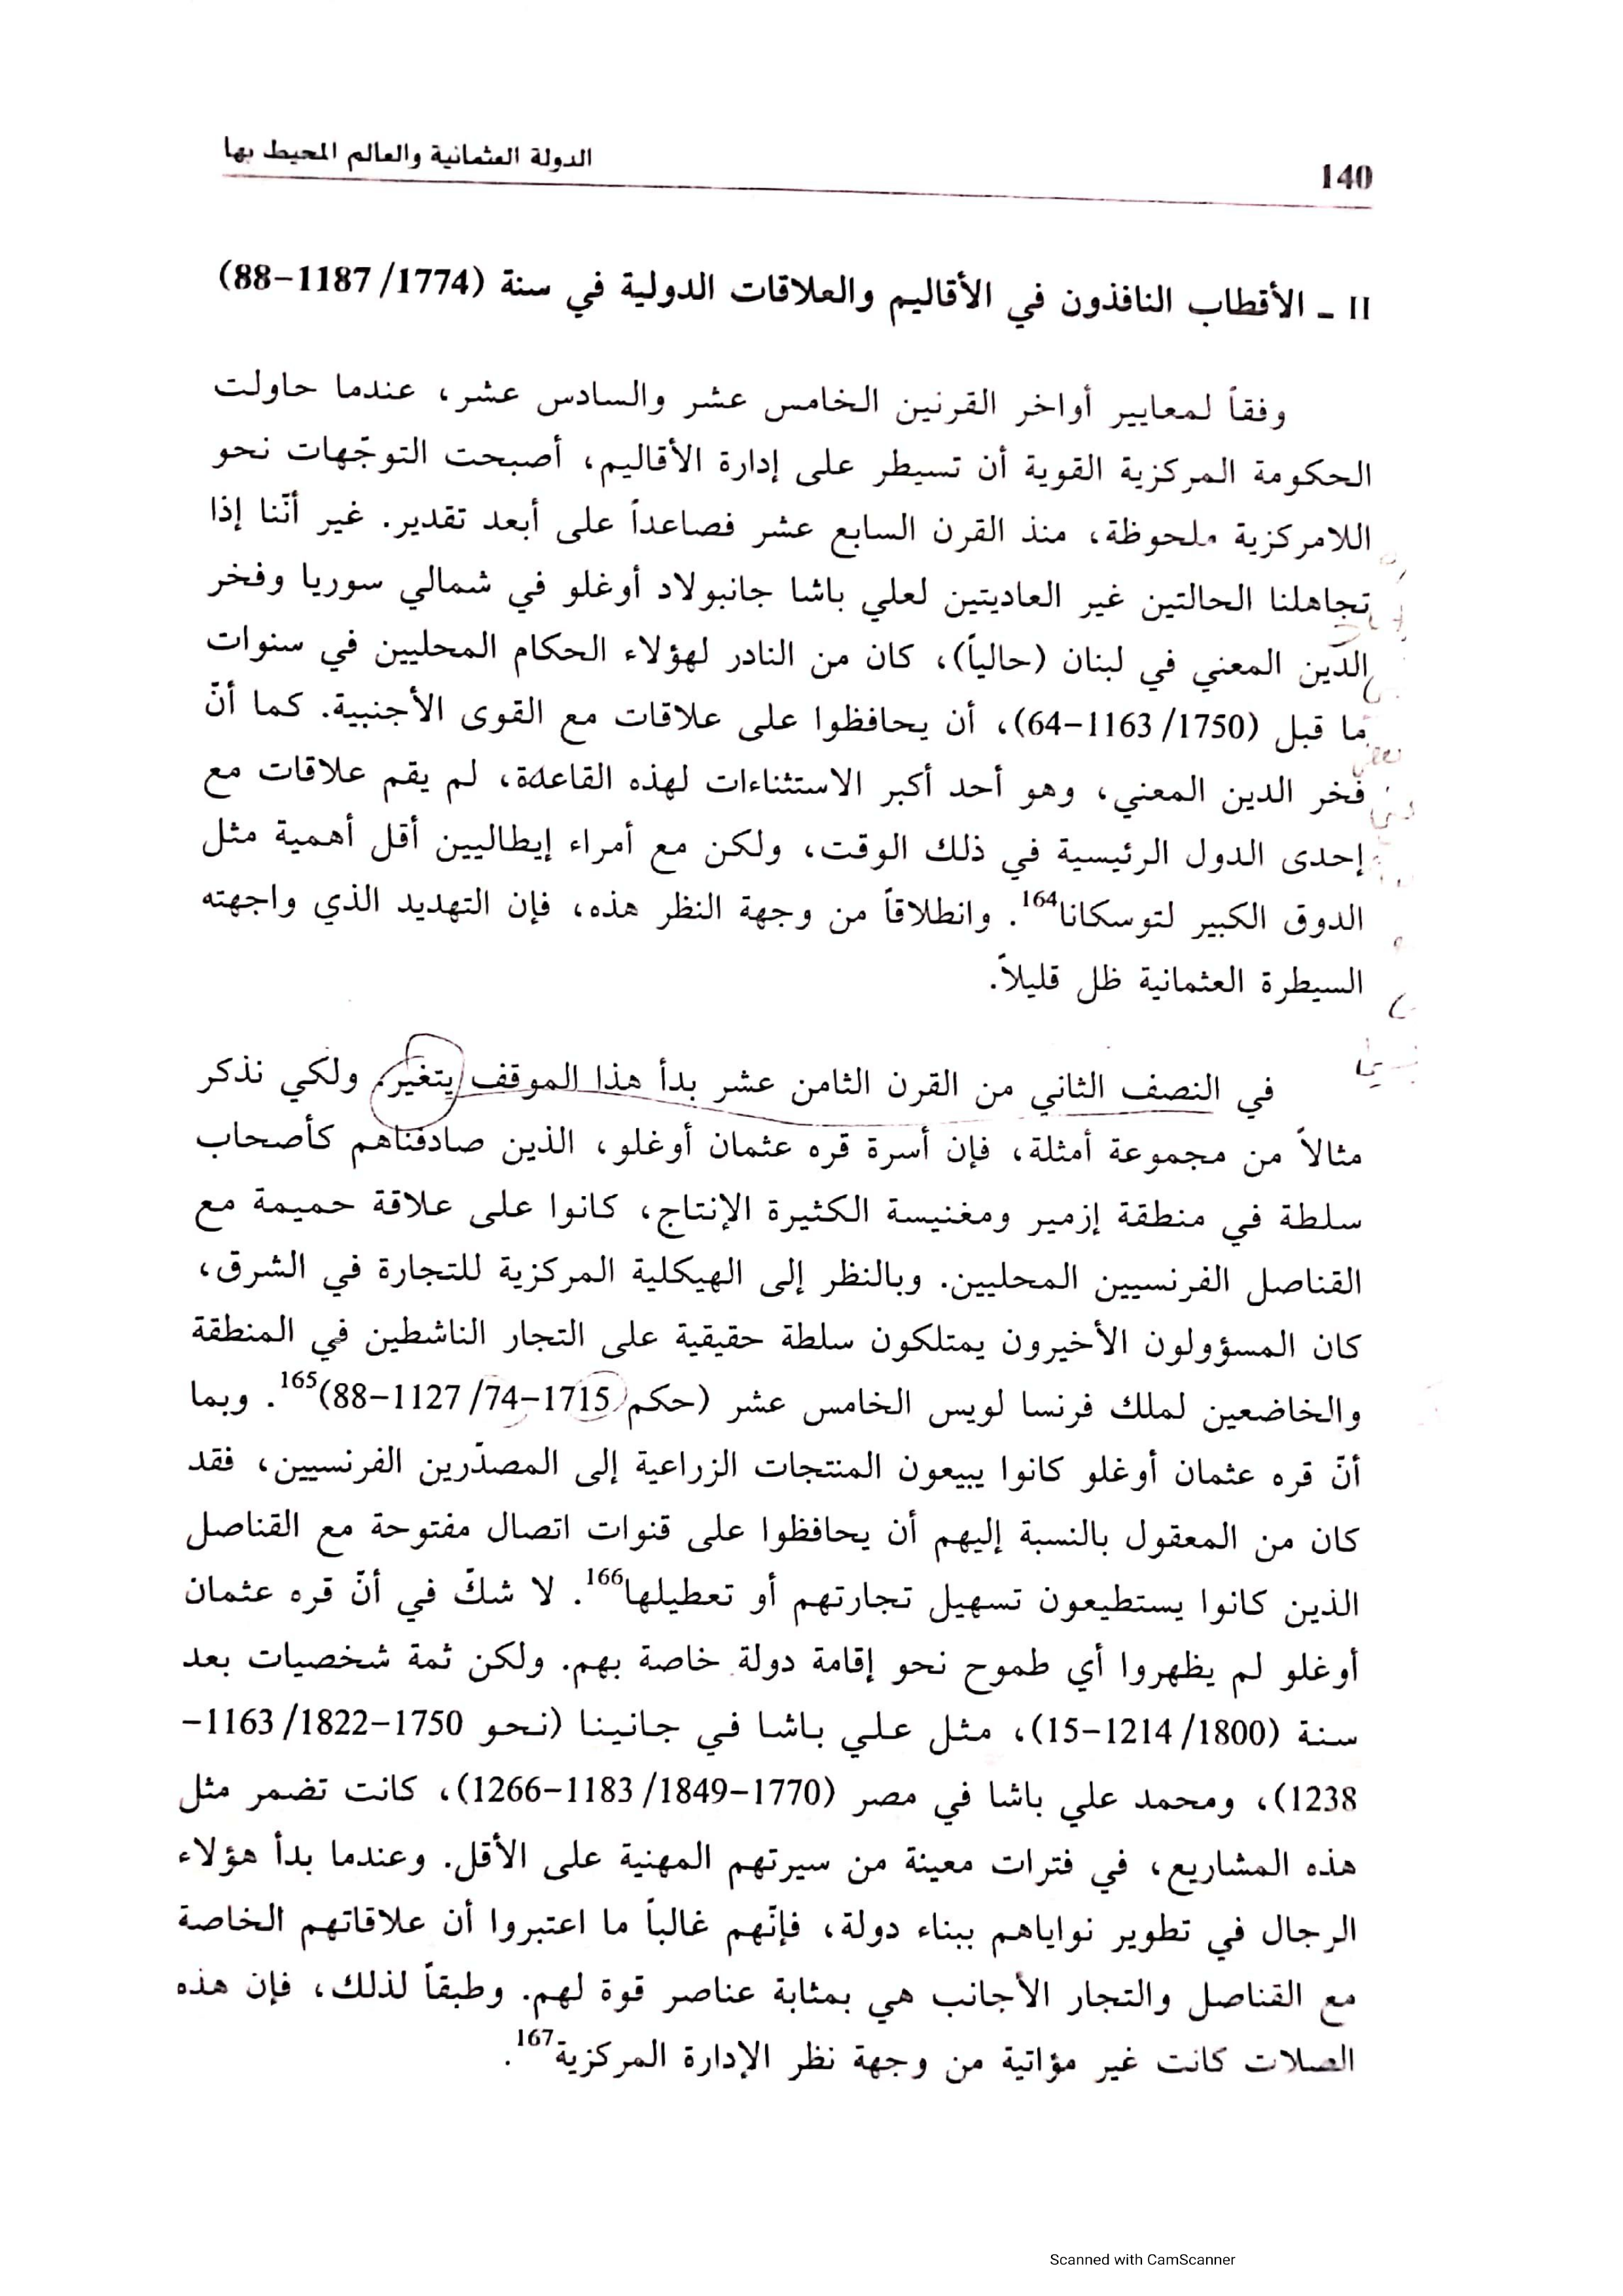 140
الدولة العثمانية والعالم المحيط بها
II ـ الأقطاب النافذون في الأقاليم والعلاقات الدولية في سنة (1774/ 1187–88)
وفقاً لمعايير أواخر القرنين الخامس عشر والسادس عشر، عندما حاولت
الحكومة المركزية القوية أن تسيطر على إدارة الأقاليم، أصبحت التوجّهات نحو
اللامركزية ملحوظة، منذ القرن السابع عشر فصاعداً على أبعد تقدير. غير أنّنا إذا
تجاهلنا الحالتين غير العاديتين لعلي باشا جانبولاد أوغلو في شمالي سوريا وفخر
الدين المعني في لبنان (حالياً)، كان من النادر لهؤلاء الحكام المحليين في سنوات
ما قبل (1750/ 1163–64)، أن يحافظوا على علاقات مع القوى الأجنبية. كما أنّ
فخر الدين المعني، وهو أحد أكبر الاستثناءات لهذه القاعدة، لم يقم علاقات مع
إحدى الدول الرئيسية في ذلك الوقت، ولكن مع أمراء إيطاليين أقل أهمية مثل
الدوق الكبير لتوسكانا164. وانطلاقاً من وجهة النظر هذه، فإن التهديد الذي واجهته
السيطرة العثمانية ظل قليلاً.
في النصف الثاني من القرن الثامن عشر بدأ هذا الموقف يتغير. ولكي نذكر
مثالاً من مجموعة أمثلة، فإن أسرة قره عثمان أوغلو، الذين صادفناهم كأصحاب
سلطة في منطقة إزمير ومغنيسة الكثيرة الإنتاج، كانوا على علاقة حميمة مع
القناصل الفرنسيين المحليين. وبالنظر إلى الهيكلية المركزية للتجارة في الشرق،
كان المسؤولون الأخيرون يمتلكون سلطة حقيقية على التجار الناشطين في المنطقة
والخاضعين لملك فرنسا لويس الخامس عشر (حكم 1715–74/ 1127–88)165. وبما
أنّ قره عثمان أوغلو كانوا يبيعون المنتجات الزراعية إلى المصدّرين الفرنسيين، فقد
كان من المعقول بالنسبة إليهم أن يحافظوا على قنوات اتصال مفتوحة مع القناصل
الذين كانوا يستطيعون تسهيل تجارتهم أو تعطيلها166. لا شكّ في أنّ قره عثمان
أوغلو لم يظهروا أي طموح نحو إقامة دولة خاصة بهم. ولكن ثمة شخصيات بعد
سنة (1800/ 1214–15)، مثل علي باشا في جانينا (نحو 1750–1822/ 1163–
1238)، ومحمد علي باشا في مصر (1770–1849/ 1183–1266)، كانت تضمر مثل
هذه المشاريع، في فترات معينة من سيرتهم المهنية على الأقل. وعندما بدأ هؤلاء
الرجال في تطوير نواياهم ببناء دولة، فإنّهم غالباً ما اعتبروا أن علاقاتهم الخاصة
مع القناصل والتجار الأجانب هي بمثابة عناصر قوة لهم. وطبقاً لذلك، فإن هذه
الصلات كانت غير مؤاتية من وجهة نظر الإدارة المركزية167.
Scanned with CamScanner